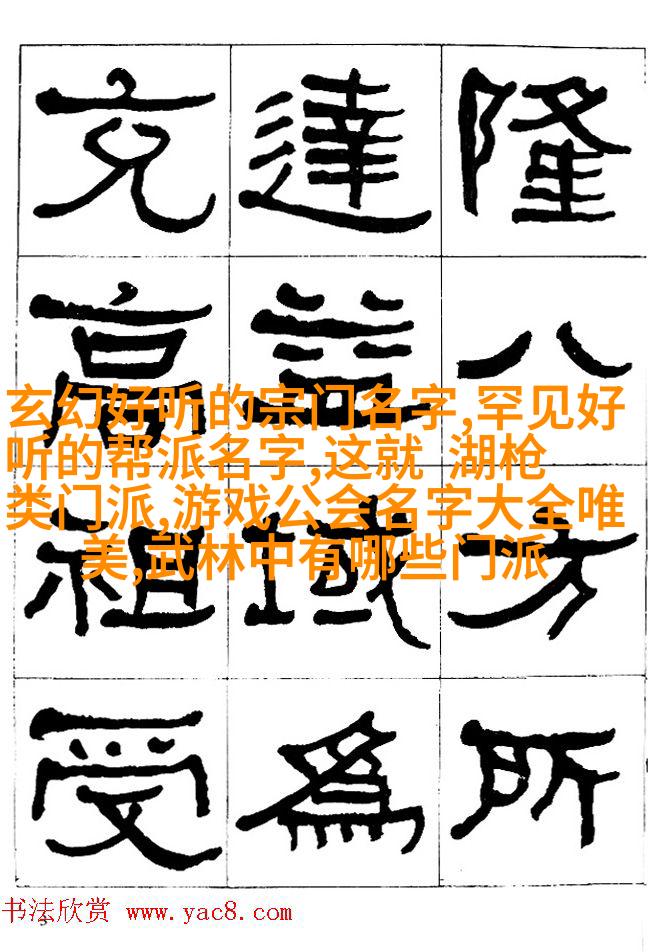 隆八方所
達益域為
充高祖受
玄幻好听的宗门名字,罕见好
听的帮派名字,这就 湖枪
类门派,游戏公会名字大全唯
美,武林中有哪些门派
书法欣赏 www.yac8.com
3